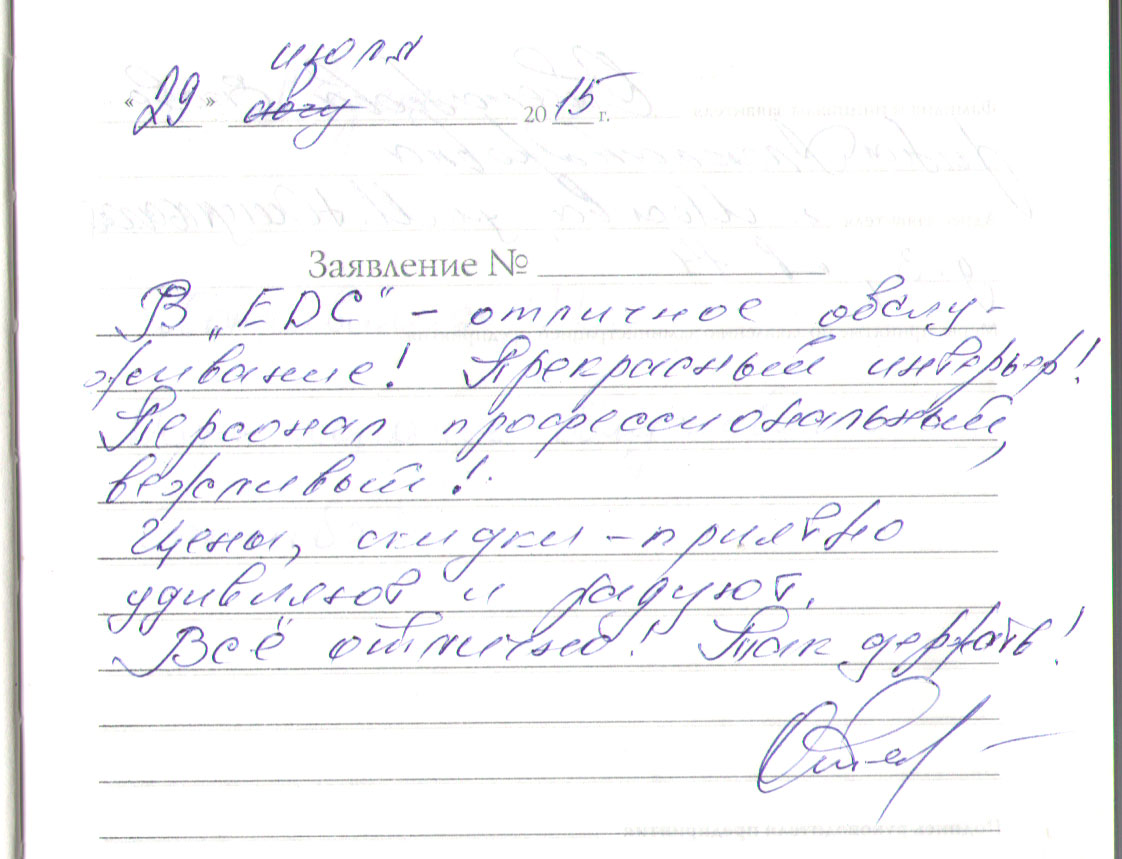 июля
«29» 2015 г.
Заявление №
В „EDC“ – отличное обслу-
живание! Прекрасный интерьер!
Персонал профессиональный,
вежливый!
Цены, скидки – приятно
удивляют и радуют.
Всё отлично! Так держать!